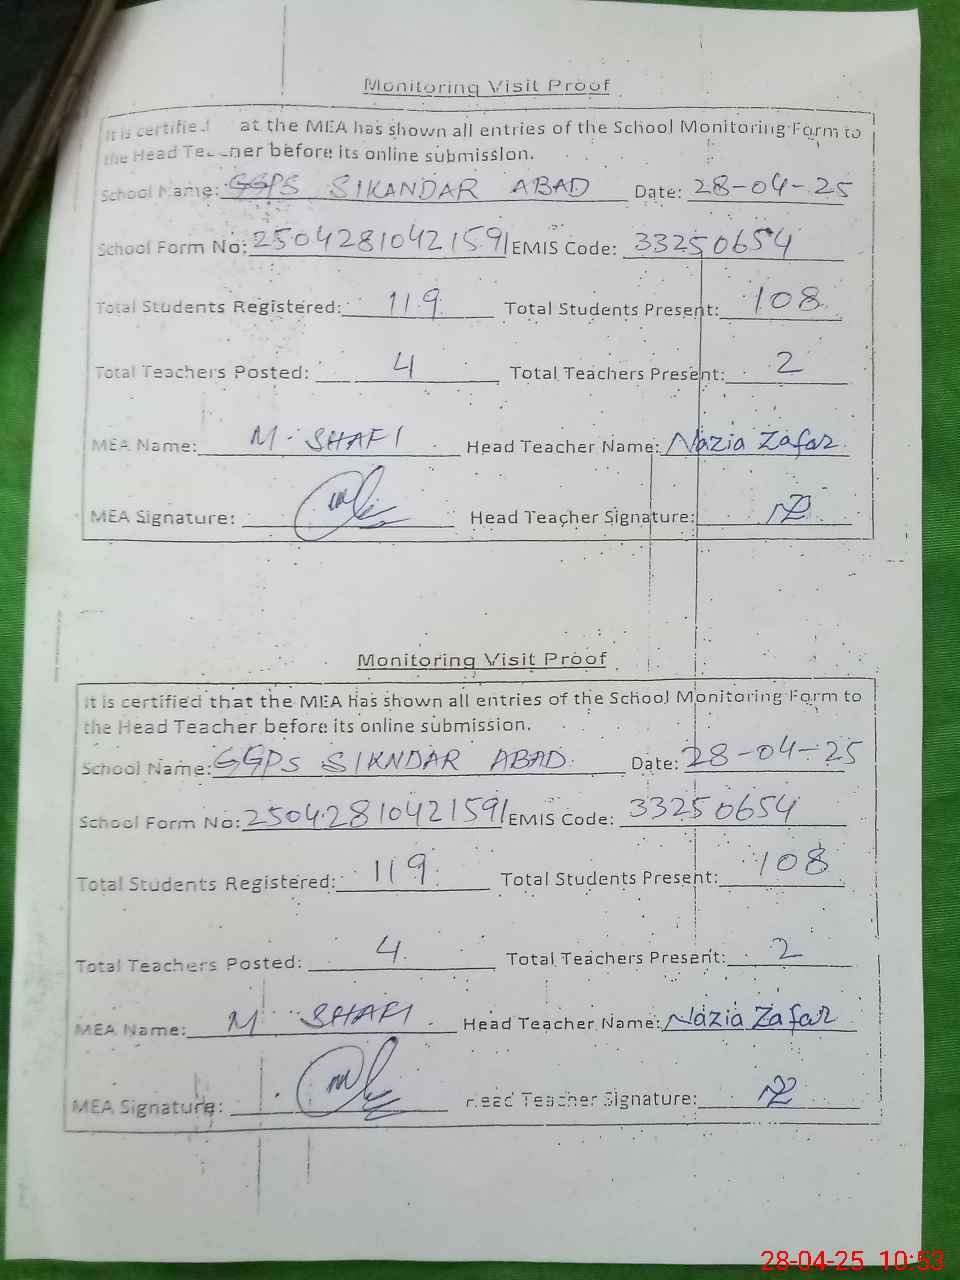 Monitoring Visit Proof
It is certified at the MEA has shown all entries of the School Monitoring Form to
the Head Teacher before its online submission.
School Name: GGPS SIKANDAR ABAD Date: 28-04-25
School Form No: 25042810421591 EMIS Code: 33250654
Total Students Registered: 119 Total Students Present: 108
Total Teachers Posted: 4 Total Teachers Present: 2
MEA Name: M. SHAFI Head Teacher Name: Nazia Zafar
MEA Signature: Head Teacher Signature:
Monitoring Visit Proof
It is certified that the MEA has shown all entries of the School Monitoring Form to
the Head Teacher before its online submission.
School Name: GGPS SIKNDAR ABAD Date: 28-04-25
School Form No: 25042810421591 EMIS Code: 33250654
Total Students Registered: 119 Total Students Present: 108
Total Teachers Posted: 4 Total Teachers Present: 2
MEA Name: M SHAFI Head Teacher Name: Nazia Zafar
MEA Signature: Head Teacher Signature:
28-04-25 10:53